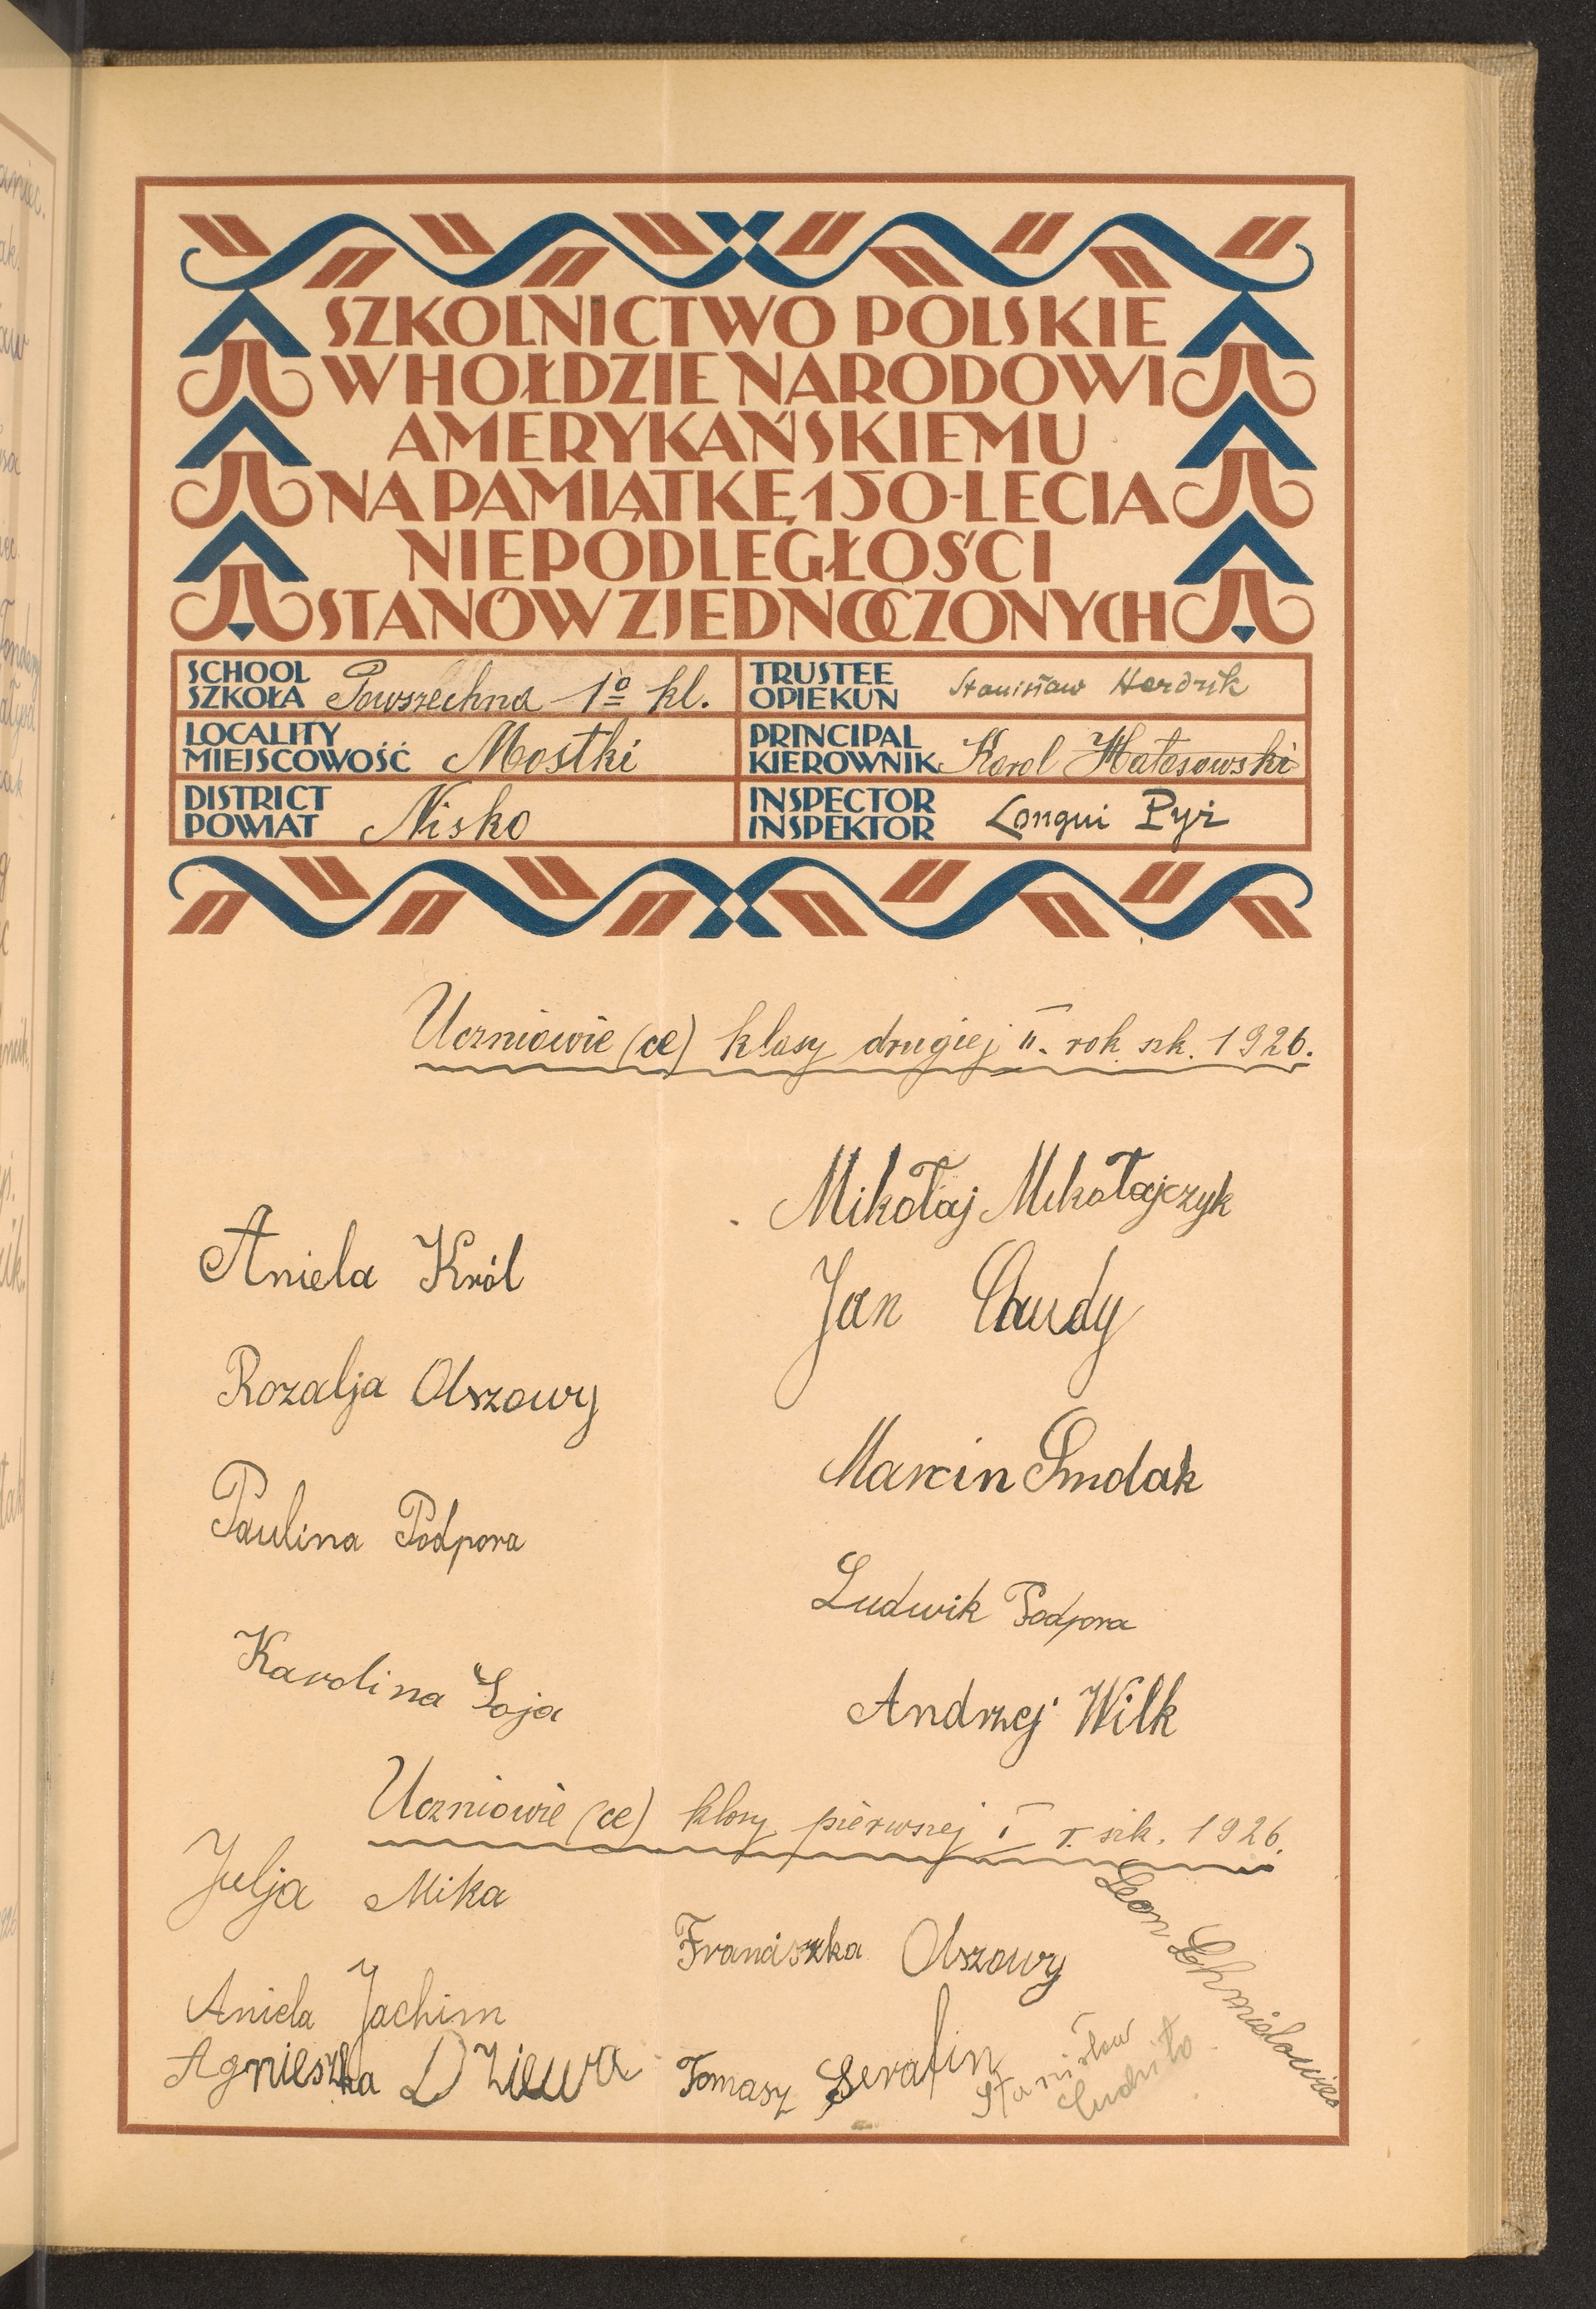 SZKOLNICTWO POLSKIE
W HOŁDZIE NARODOWI
AMERYKAŃSKIEMU
NA PAMIĄTKĘ 150-LECIA
NIEPODLEGŁOŚCI
STANÓW ZJEDNOCZONYCH
SCHOOL
SZKOŁA Powszechna 1º kl.
LOCALITY
MIEJSCOWOŚĆ Mostki
DISTRICT
POWIAT Nisko
TRUSTEE
OPIEKUN Stanisław
PRINCIPAL
KIEROWNIK Karol
INSPECTOR
INSPEKTOR Longin Pyż
Uczniowie (ce) klasy drugiej II. rok szk. 1926.
Aniela Król
Rozalja Olszowy
Paulina Podpora
Karolina Łoja
Mikołaj Mikołajczyk
Jan Chudy
Marcin Smolak
Ludwik Podpora
Andrzej Wilk
Uczniowie (ce) klasy pierwszej I r. szk. 1926.
Julja Mika
Aniela Jachim
Agnieszka DZiewa
Franciszka Olszowy
Tomasz Serafin
Stanisław
Leon